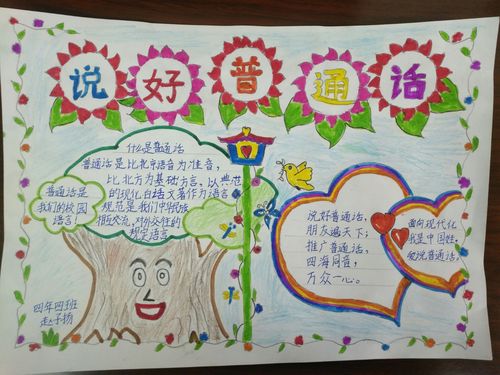 说好普通话
什么是普通话
普通话是比北京语音为准音,
比北方为基础方言、以典范
的现代白话文著作为语言
规范是我们中华民族
相互交流,对外交往的
规定语言
普通话是
我们的校园
语言
说好普通话,
朋友遍天下;
推广普通话,
四海同音,
万众一心。
面向现代化
我是中国娃,
爱说普通话,
四年四班
赵子扬